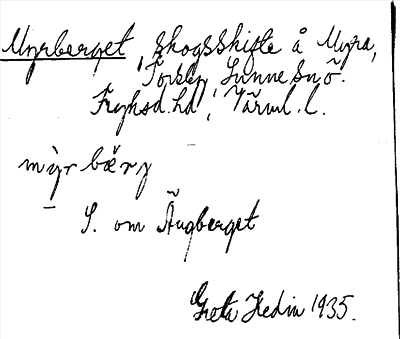 Myrberget, skogsskifte å Myra,
Torsby, Sunne snö.
Fryksd. hd, Värml. l.
my̆r bæ̆rj
S. om Ängberget
Greta Hedin 1935.